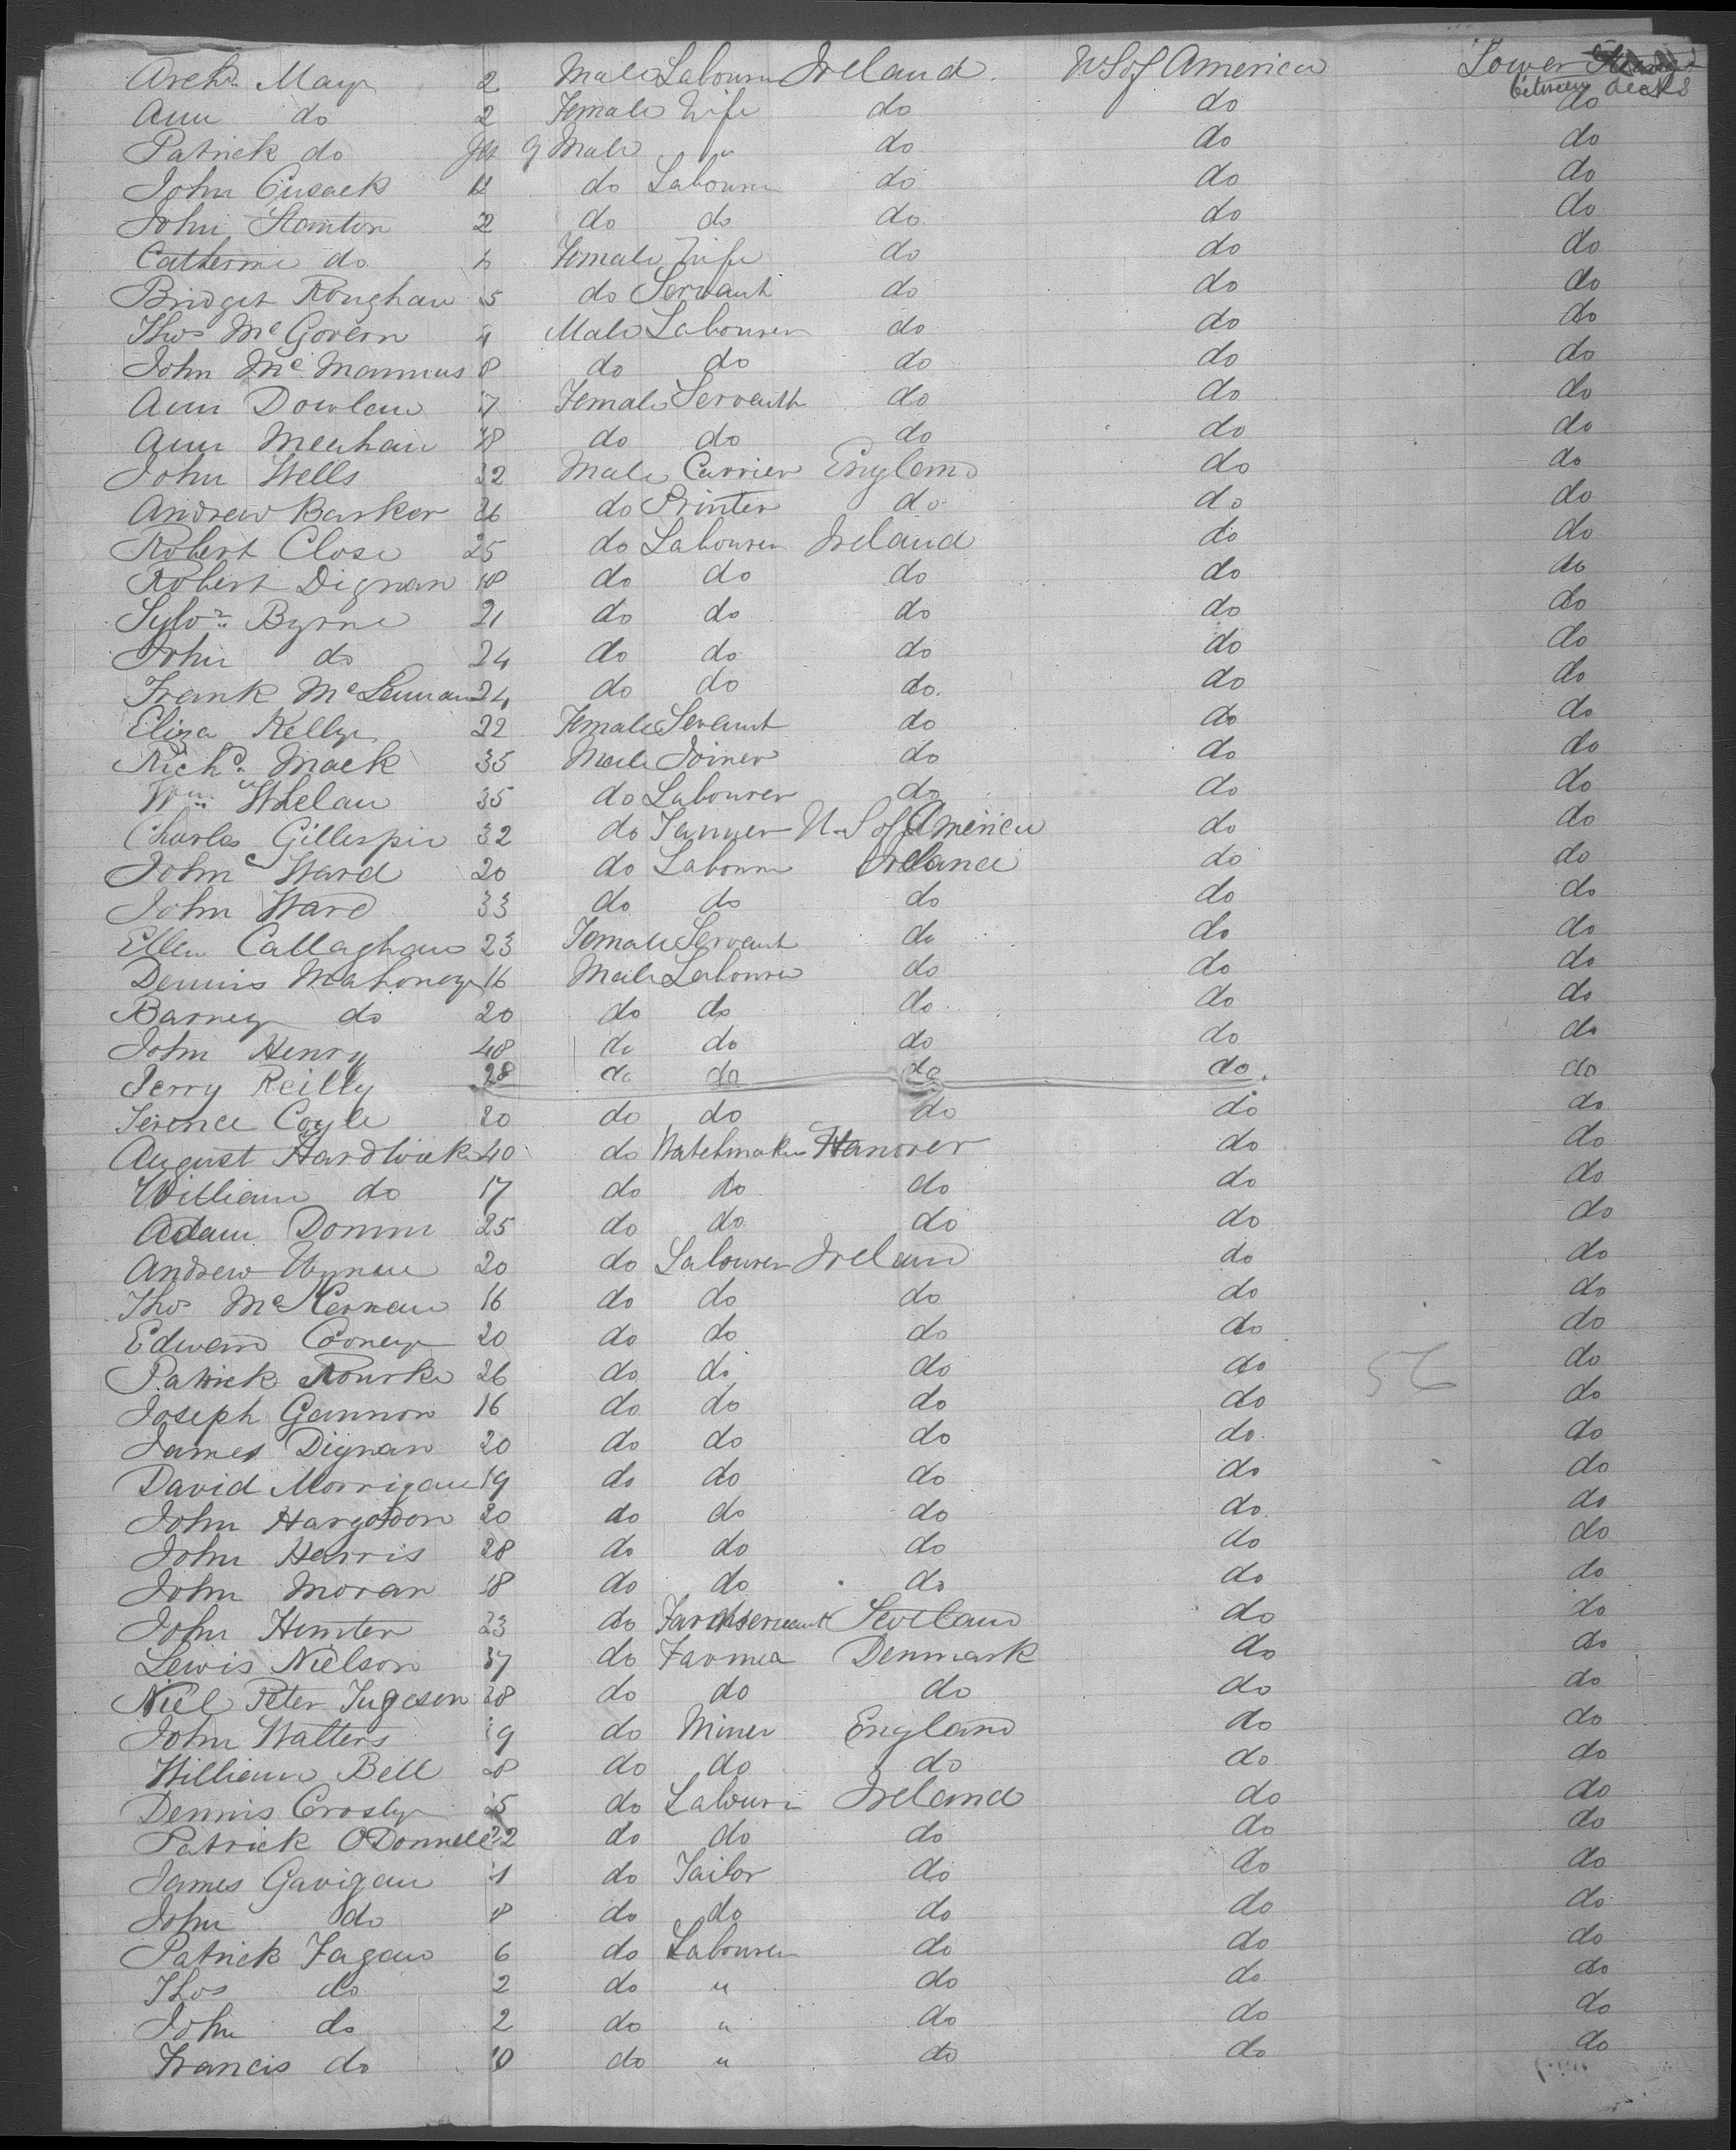 Archd. May 2 Male Labourer Ireland U S of America Lower
between decks
Ann do 2 Female Wife do do do
Patrick do 9 Male " do do do
John Cusack do Labourer do do do
John Stanton 2 do do do do do
Catherine do Female Wife do do do
Bridget Roughan 5 do Servant do do do
Thos McGovern Male Labourer do do do
John McMannus 8 do do do do do
Ann Dowlan 17 Female Servant do do do
Ann Meehan 18 do do do do do
John Wells 32 Male Carrier England do do
Andrew Barker 26 do Printer do do do
Robert Close 25 do Labourer Ireland do do
Robert Dignan 18 do do do do do
Sylvr. Byrne 21 do do do do do
John do 24 do do do do do
Frank McLennan 24 do do do do do
Eliza Kelly 22 Female Servant do do do
Richd. Mack 35 Male Joiner do do do
Wm. Whelan 35 do Labourer do do do
Charles Gillespie 32 do Tanner U S of America do do
John Ward 20 do Labourer Ireland do do
John Ward 33 do do do do do
Ellen Callaghan 23 Female Servant do do do
Dennis Mahoney 16 Male Labourer do do do
Barney do 20 do do do do do
John Henry 48 do do do do do
Jerry Reilly 28 do do do do do
Terence Coyle 20 do do do do do
August Hardwick 40 do Watchmaker Hanover do do
William do 17 do do do do do
Adam Domm 25 do do do do do
Andrew Wynne 20 do Labourer Ireland do do
Thos McKernan 16 do do do do do
Edward Cooney 20 do do do do do
Patrick Rourke 26 do do do do do
56
Joseph Gannon 16 do do do do do
James Dignan 20 do do do do do
David Morrigan 19 do do do do do
John Hargadon 20 do do do do do
John Harris 28 do do do do do
John Moran 18 do do do do do
John Hunter 23 do Farmservant Scotland do do
Lewis Nielson 37 do Farmer Denmark do do
Niel Peter 28 do do do do do
John Walters 19 do Miner England do do
William Bell 28 do do do do do
Dennis Crosby 25 do Labourer Ireland do do
Patrick O'Donnell 22 do do do do do
James Gavigan do Tailor do do do
John do 8 do do do do do
Patrick Fagan 6 do Labourer do do do
Thos do 2 do " do do do
John do 2 do " do do do
Francis do 10 do " do do do